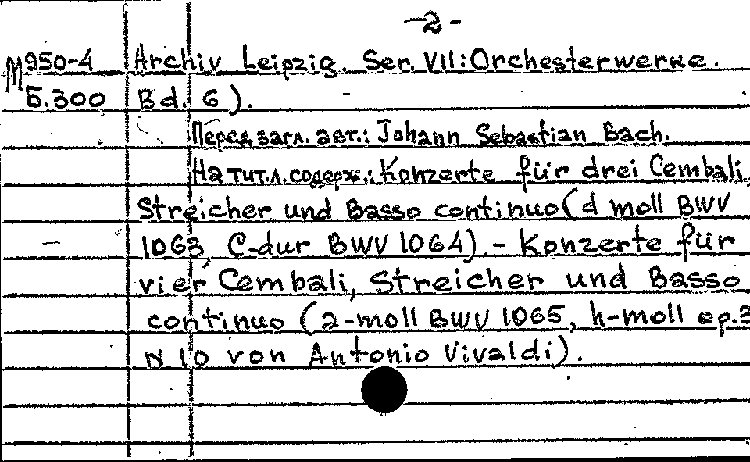 -2-
М950-4 Archiv Leipzig. Ser. VII: Orchesterwerke.
Б.300 Bd. 6).
Перед загл. авт.: Johann Sebastian Bach.
На тит.л. содерж.: Konzerte für drei Cembali,
Streicher und Basso continuo (d moll BWV
1063 C-dur BWV 1064). - Konzerte für
vier Cembali, Streicher und Basso
continuo (a-moll BWV 1065, h-moll op.3
N 10 von Antonio Vivaldi).